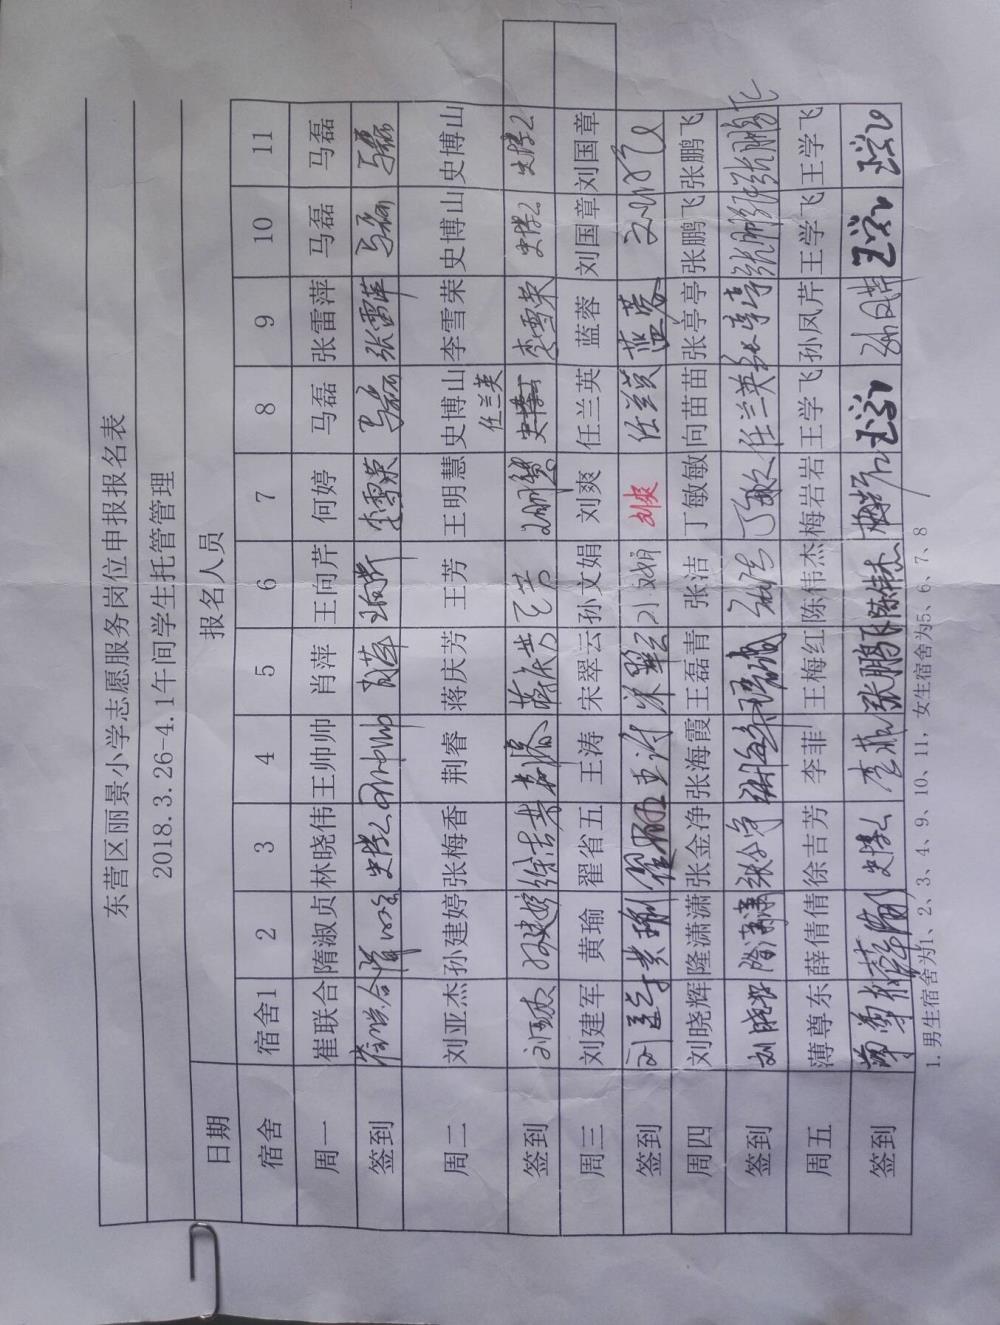 东营区丽景小学志愿服务岗位申报报名表
2018.3.26-4.1午间学生托管管理
日期 报名人员
宿舍 宿舍1 2 3 4 5 6 7 8 9 10 11
周一 崔联合 隋淑贞 林晓伟 王帅帅 肖萍 王向芹 何婷 马磊 张雷萍 马磊 马磊
签到 崔联合 史博山 王帅帅 肖萍 王向芹 李雪荣 马磊 张雷萍 马磊 马磊
周二 刘亚杰 孙建婷 张梅香 荆睿 蒋庆芳 王芳 王明慧 史博山 李雪荣 史博山 史博山
任兰英
签到 刘亚杰 孙建婷 徐吉芳 荆睿 蒋庆芳 王芳 王明慧 史博山 李雪荣 史博山 史博山
周三 刘建军 黄瑜 翟省五 王涛 宋翠云 孙文娟 刘爽 任兰英 蓝蓉 刘国章 刘国章
签到 刘建军 黄瑜 翟省五 王涛 宋翠云 刘爽 任兰英 蓝蓉
周四 刘晓辉 隆潇潇 张金净 张海霞 王磊青 张洁 丁敏敏 向苗苗 张亭亭 张鹏飞 张鹏飞
签到 刘晓辉 隆潇潇 张金净 张海霞 张洁 丁敏敏 任兰英 张亭亭 张鹏飞 张鹏飞
周五 薄尊东 薛倩倩 徐吉芳 李菲 王梅红 陈伟杰 梅岩岩 王学飞 孙凤芹 王学飞 王学飞
签到 薄尊东 薛倩倩 史博山 李菲 张鹏飞 陈伟杰 梅岩岩 王学飞 孙凤芹 王学飞 王学飞
1.男生宿舍为1、2、3、4、9、10、11，女生宿舍为5、6、7、8